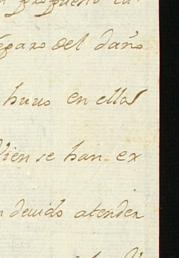 eparo del daño
huvo en ellos
ien se han ex
devido atender